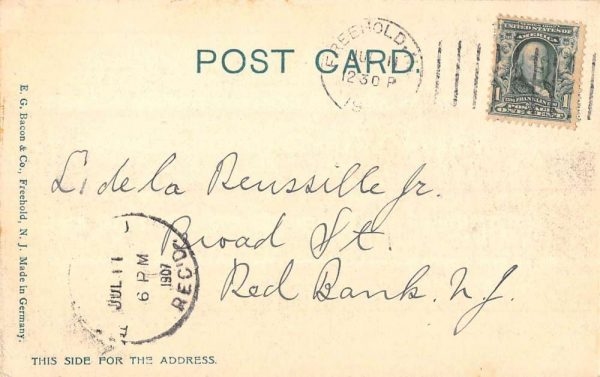 POST CARD.
FREEHOLD
JUL 11
230P
190
SERIES 1902
UNITED STATES OF
AMERICA
1 FRANKLIN 1
POSTAGE
ONE CENT
L. de la Reussille Jr.
Broad St.
Red Bank. N J.
JUL 11
6 PM
1907
REC'D.
E. G. Bacon & Co., Freehold, N. J. Made in Germany.
THIS SIDE FOR THE ADDRESS.